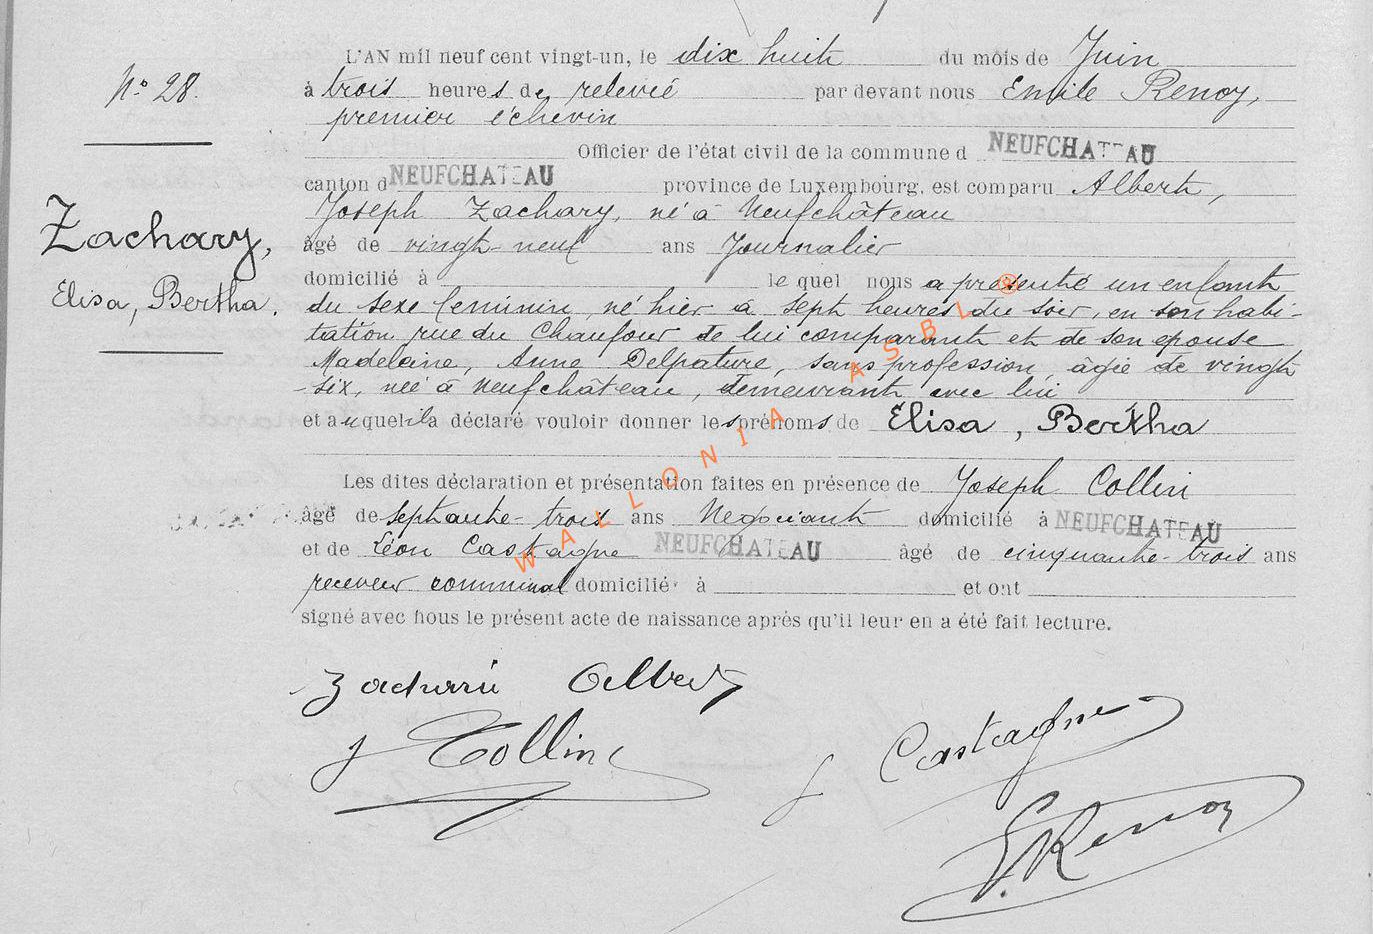 L'AN mil neuf cent vingt-un, le dix huit du mois de Juin
N° 28.
à trois heures de relevée par devant nous Emile Renoy,
premier échevin
Officier de l'état civil de la commune d NEUFCHATEAU
canton d NEUFCHATEAU province de Luxembourg, est comparu Albert,
Joseph Zachary, né à Neufchâteau
Zachary,
âgé de vingt-neuf ans Journalier
domicilié à le quel nous a présenté un enfant
Elisa, Bertha.
du sexe féminin, né hier à sept heures du soir, en son habi-
tation rue du Chaufour de lui comparant et de son épouse
Madeleine, Anne Delpature, sans profession, âgée de vingt
-six, née à Neufchâteau, demeurant avec lui
et auquel il a déclaré vouloir donner les prénoms de Elisa, Bertha
Les dites déclaration et présentation faites en présence de Joseph Collin
âgé de septante-trois ans Négociant domicilié à NEUFCHATEAU
et de Léon Castagne NEUFCHATEAU âgé de cinquante-trois ans
receveur communal domicilié à et ont
signé avec nous le présent acte de naissance après qu'il leur en a été fait lecture.
Zacharri Albert
J Collin
L Castagne
E. Renoy
WALLONIA ASBL ®